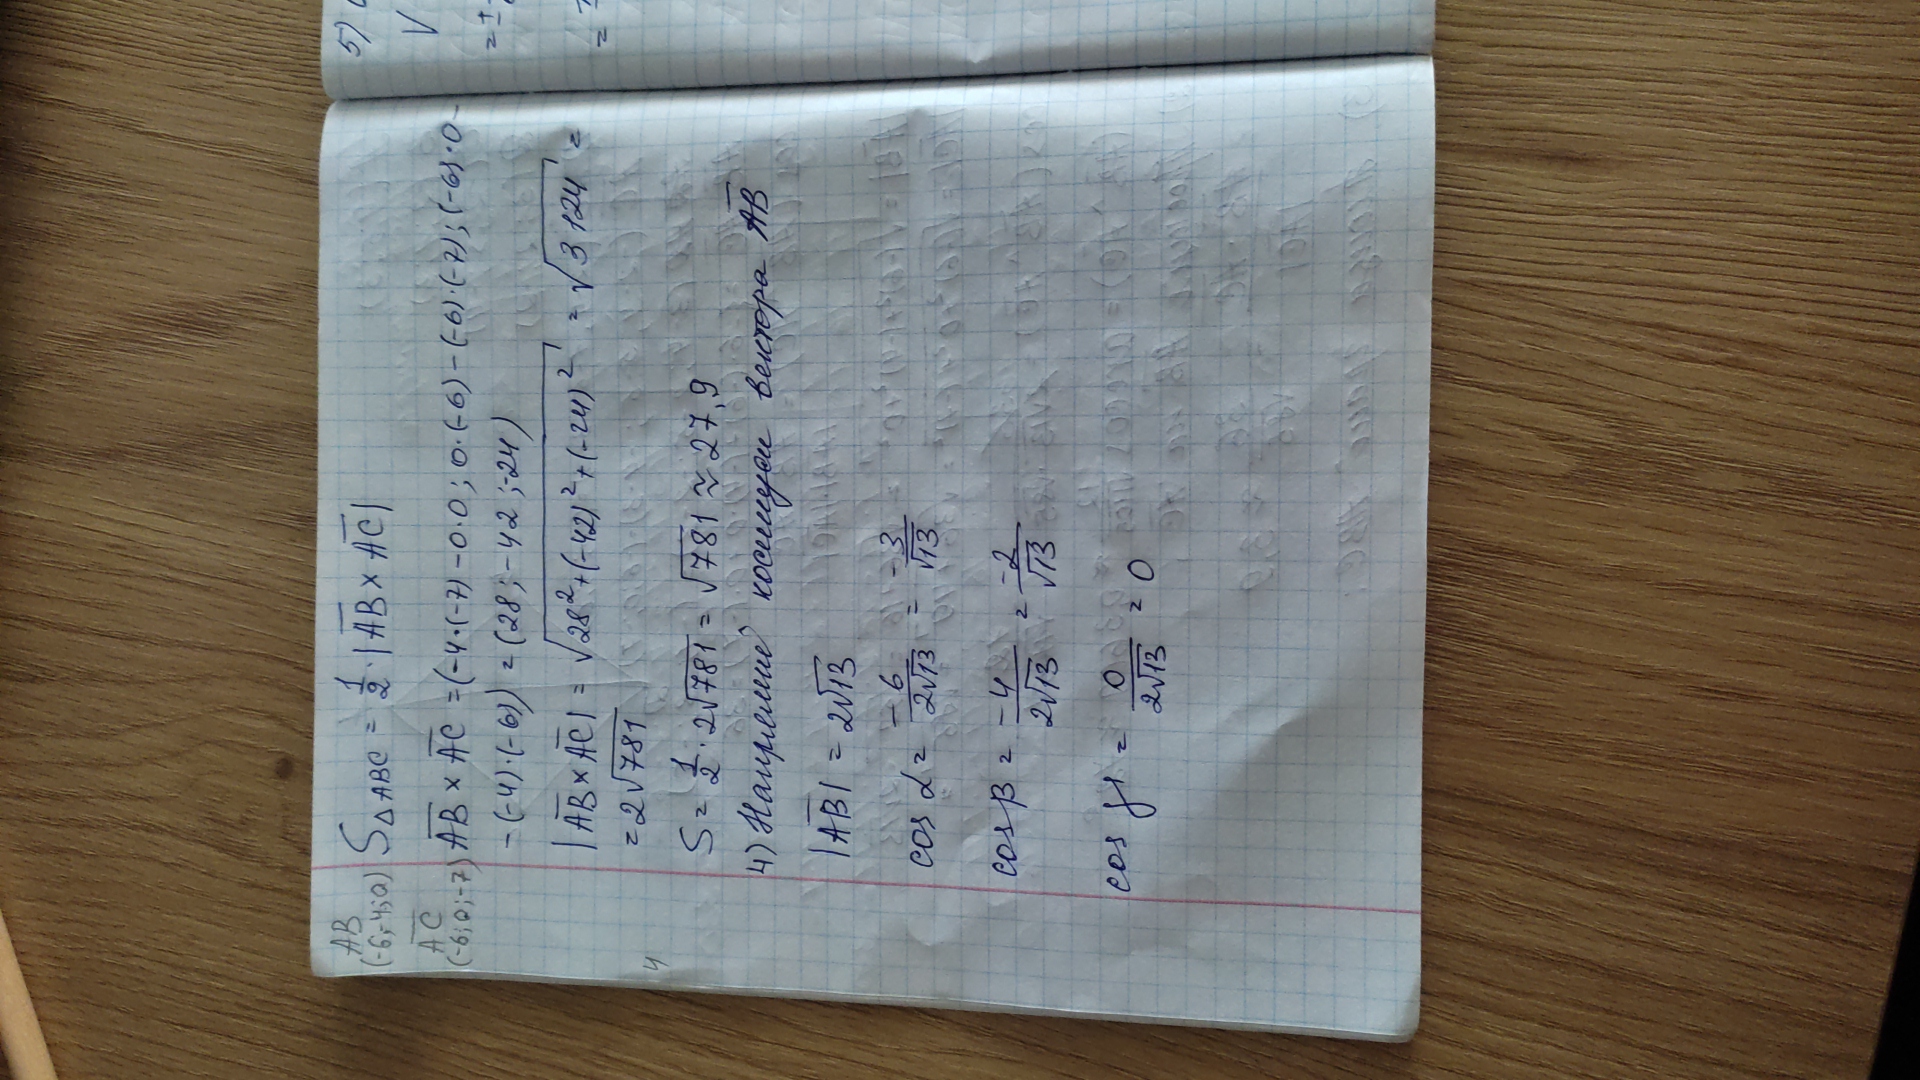 AB
(-6;-4;0)
S△ABC = 1/2 · |AB × AC|
AC
(-6;0;-7)
AB × AC = (-4·(-7) - 0·0; 0·(-6) - (-6)·(-7); (-6)·0 -
- (-4)·(-6)) = (28; -42; -24)
|AB × AC| = √28² + (-42)² + (-24)² = √3 124 =
= 2√781
4
S = 1/2 · 2√781 = √781 ≈ 27,9
4) Направляю косинусы вектора AB
|AB| = 2√13
cos α = -6/2√13 = -3/√13
cos β = -4/2√13 = -2/√13
cos γ = 0/2√13 = 0
5)
√
=
=